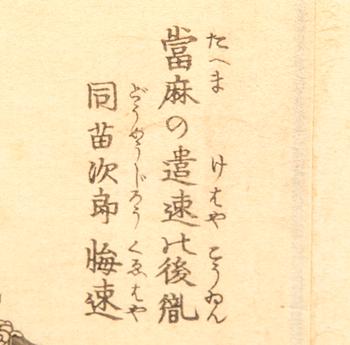 當麻の遣速が後胤
たへま けはや こうゐん
同苗次郎 悔速
どうめうじろう くゑはや